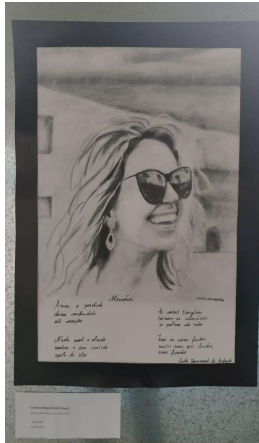 Memória
Amar o perdido
deixa confundido
este coração.
Nada pode o olvido
contra o sem sentido
apelo do Não.
As coisas tangíveis
tornam-se insensíveis
à palma da mão
Mas as coisas findas
muito mais que lindas,
essas ficarão.
Carlos Drummond de Andrade